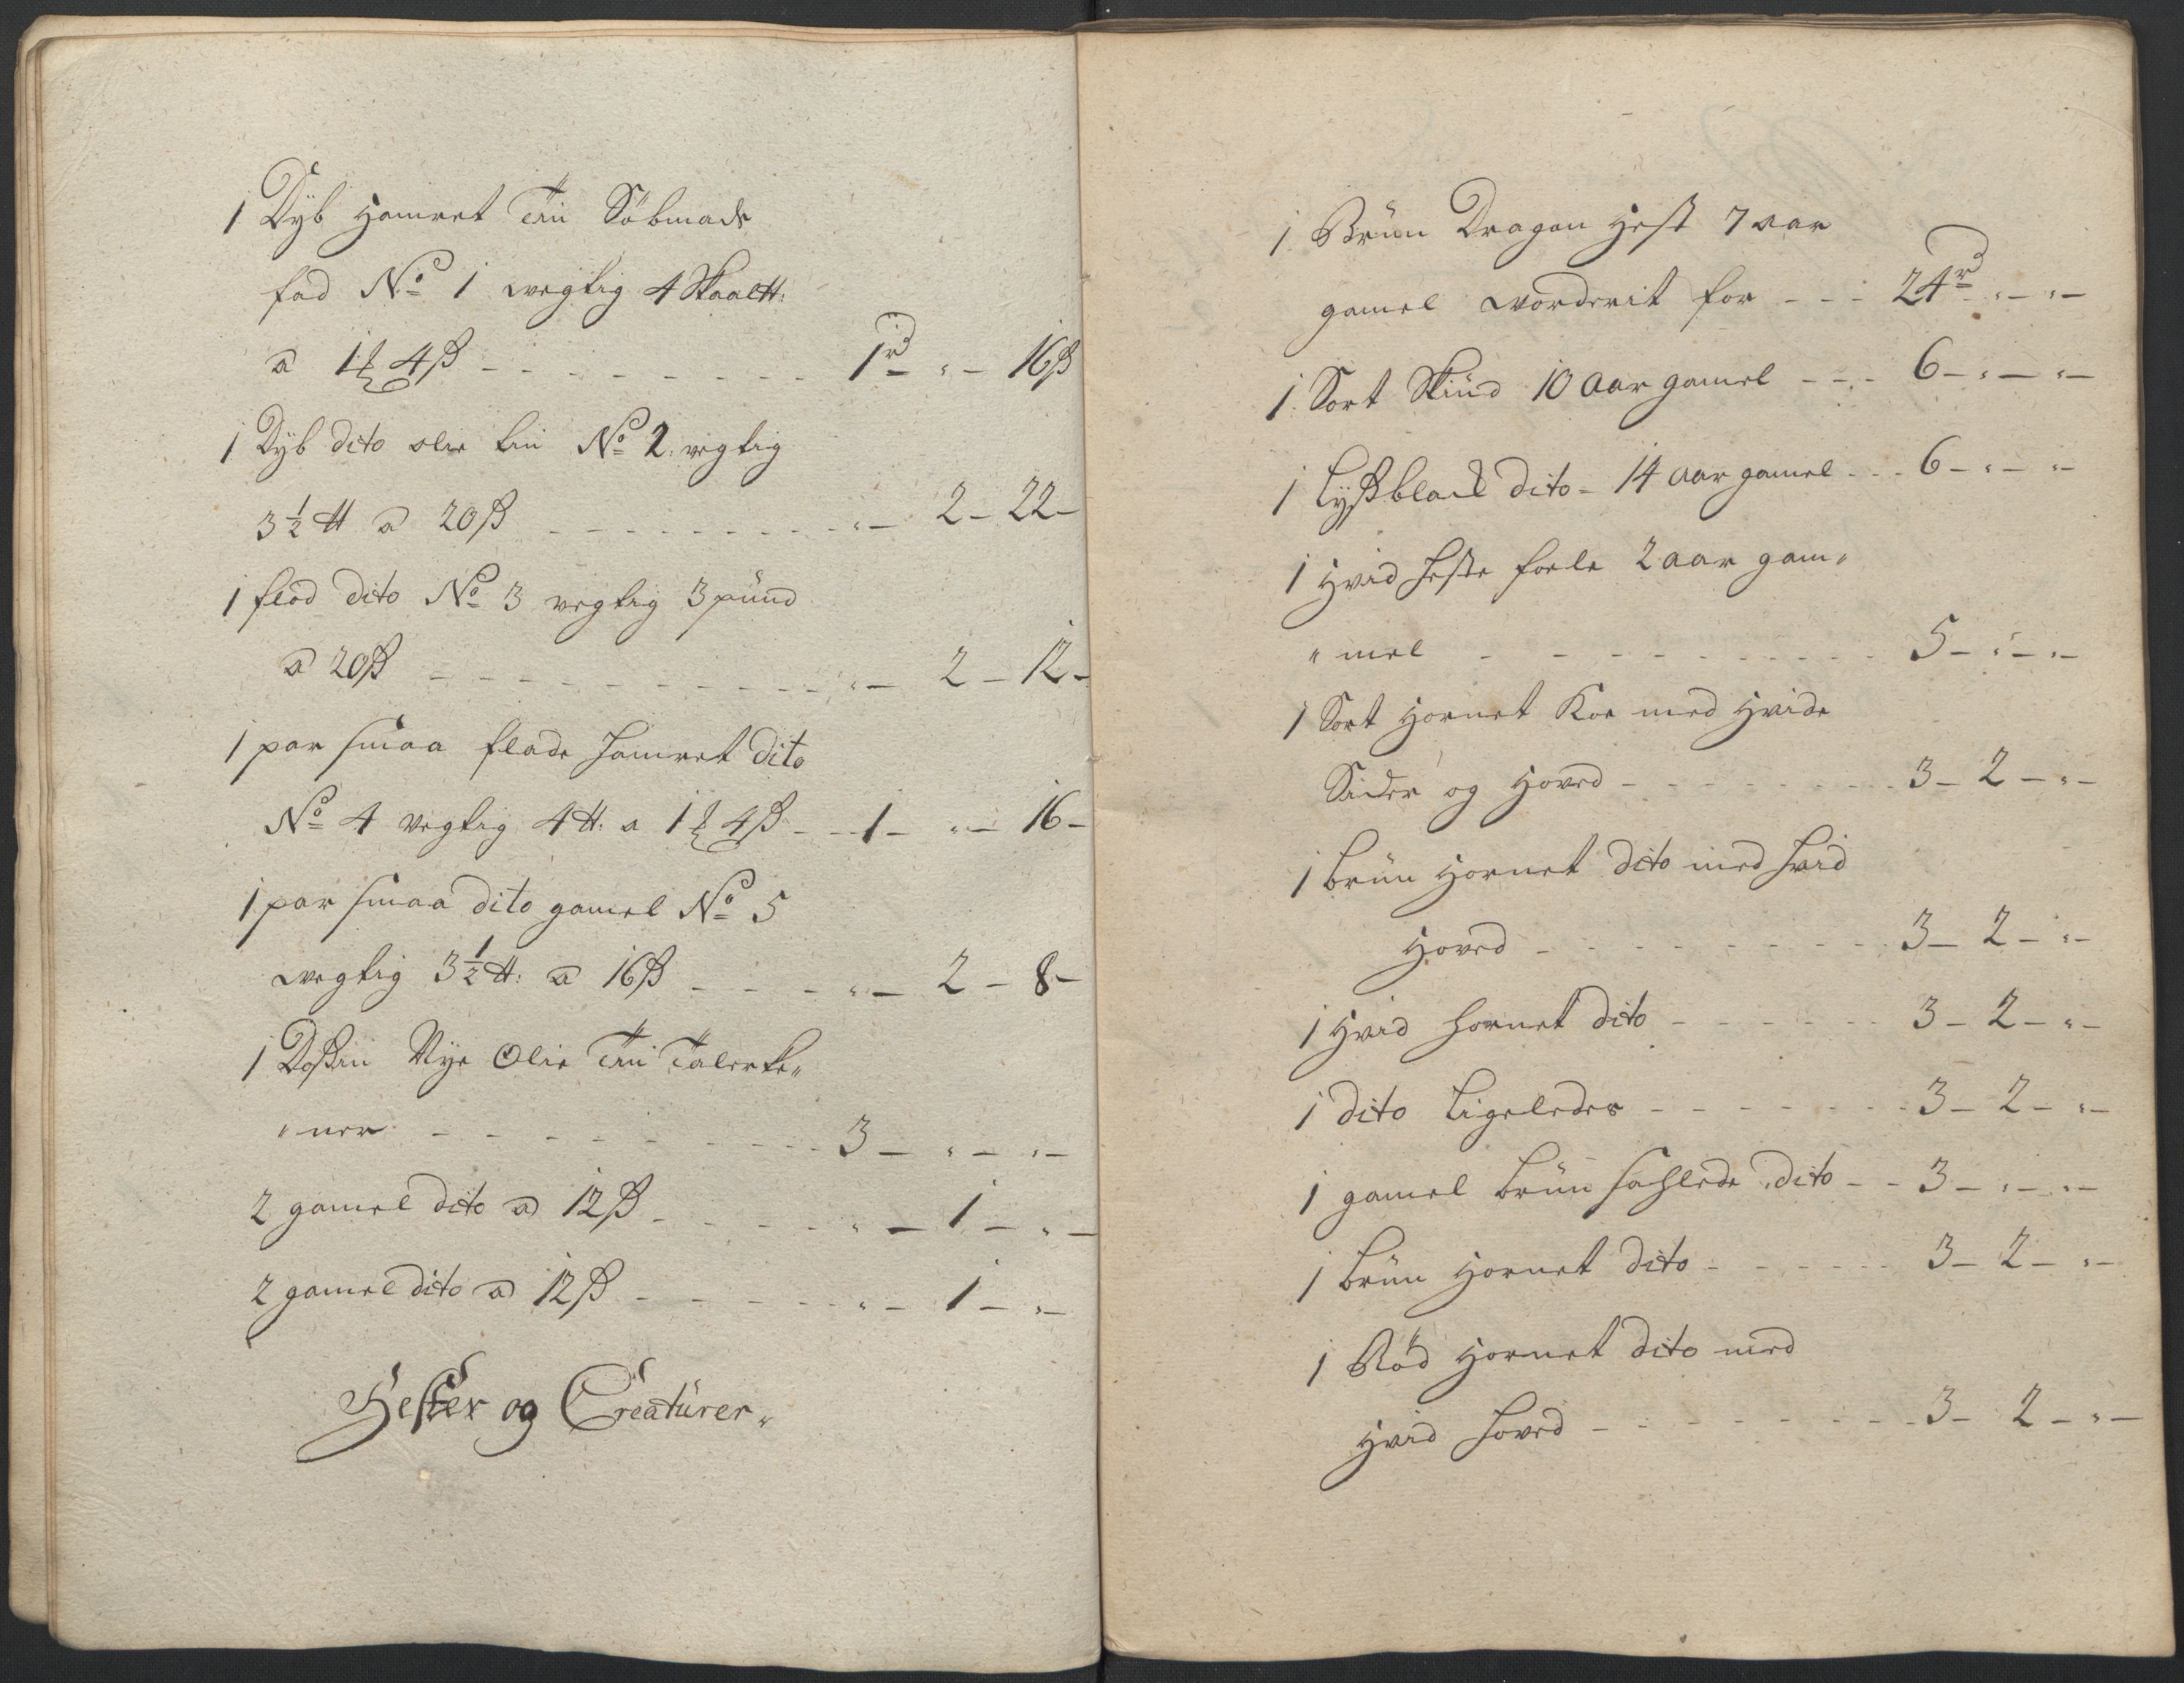 1 Dyb Hamret Tin Söbmads
fad No 1 wegtig 4 Skaal℔:
a 1 ℔ 4 ß - - - - - - - - 1 rd „ - 16 ß
1 Dyb dito olie tin No 2. vegtig
3½ ℔ a 20 ß - - - - - - - - „ - 2 - 22 -
1 flad dito No 3 vegtig 3 pund
a 20 ß - - - - - - - - - „ - 2 - 12 -
1 par smaa flade hamret dito
No 4 vegtig 4 ℔: a 1 ℔ 4 ß - - 1 - „ - 16 -
1 par smaa dito gamel No 5
wegtig 3½ ℔: a 16 ß - - - „ - 2 - 8 -
1 Dosin Nye Olie Tin Talerke„
„ner - - - - - - - - 3 - „ - „ -
2 gamel dito a 12 ß - - - - „ - 1 - „ -
2 gamel dito a 12 ß - - - - „ - 1 - „ -
Hester og Creatürer„
1. Brun Dragon Hest 7 aar
gamel worderit for - - - 24 rd „ - „ -
1. Sort Skiud 10 Aar gamel - - - 6 - „ - „ -
1 Lysblack dito - 14 aar gamel - - 6 - „ - „ -
1 Hvid heste fole 2 aar gam„
„mel - - - - - - - - - 5 - „ - „ -
1 Sort Hornet Koe med Hvide
Sider og Hoved - - - - - - 3 - 2 - „ -
1 brun Hornet dito med hvid
Hoved - - - - - - - - 3 - 2 - „ -
1 Hvid hornet dito - - - - - 3 - 2 - „ -
1 dito Ligeledes - - - - - - 3 - 2 - „ -
1 gamel brun dito - - 3 - „ - „ -
1 brun Hornet dito - - - - - 3 - 2 - „ -
1 Röd Hornet dito med
Hvid hoved - - - - - - - 3 - 2 - „ -